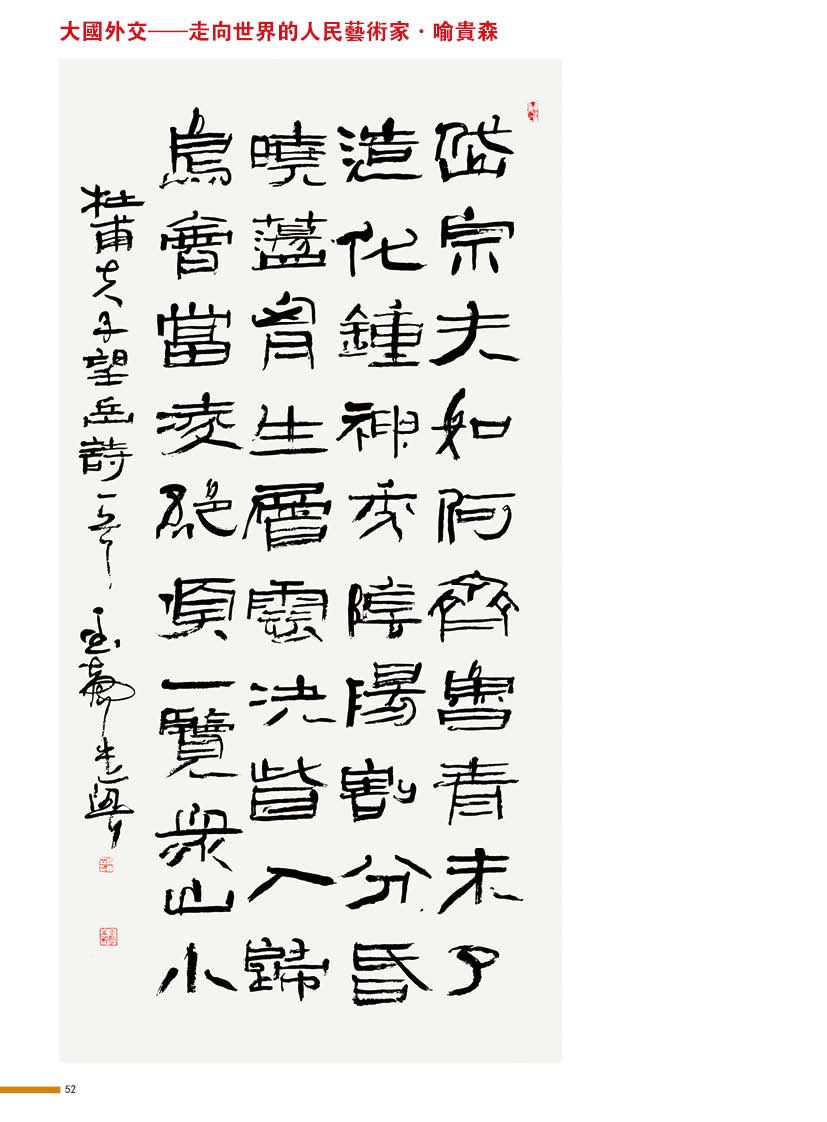 大國外交——走向世界的人民藝術家·喻貴森
岱宗夫如何齊魯青未了
造化鍾神秀陰陽割分昏
曉蕩胷生層雲決眥入歸
鳥會當凌絕頂一覽衆山小
杜甫夫子望岳詩一章
52